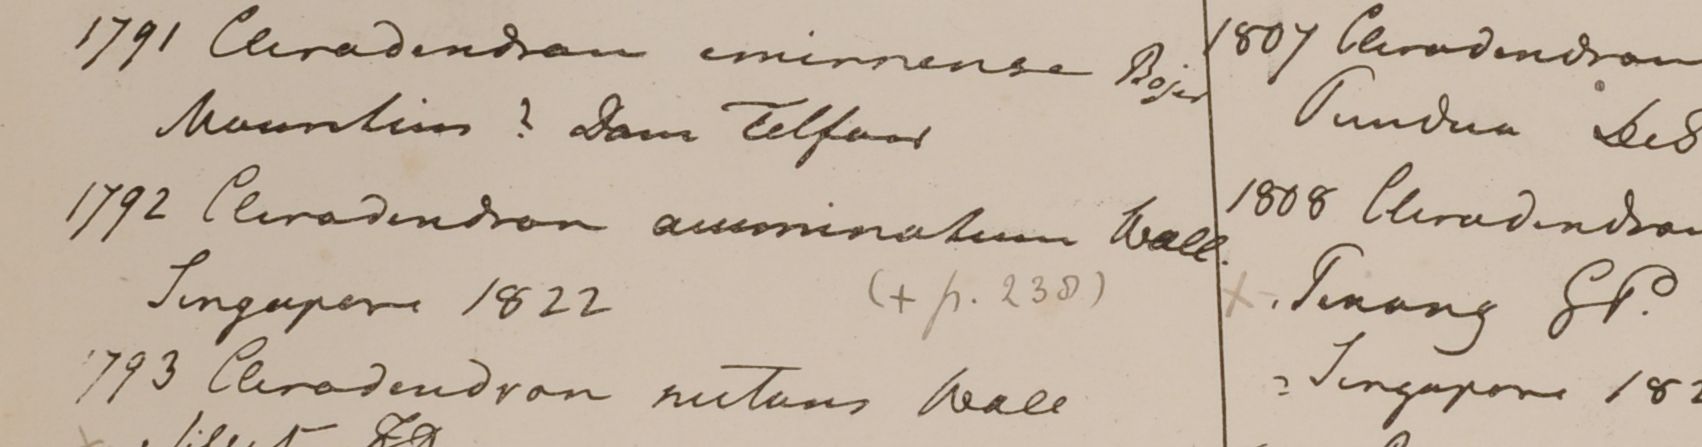 1791 Clerodendron emirnense Bojer
Mauritius ? Dom Telfair
1792 Clerodendron acuminatum Wall.
Singapore 1822 (+ p. 238)
1793 Clerodendron nutans Wall
Silhet FD
1807 Clerodendron
Pundua
1808 Clerodendron
Penang GP.
Singapore 182